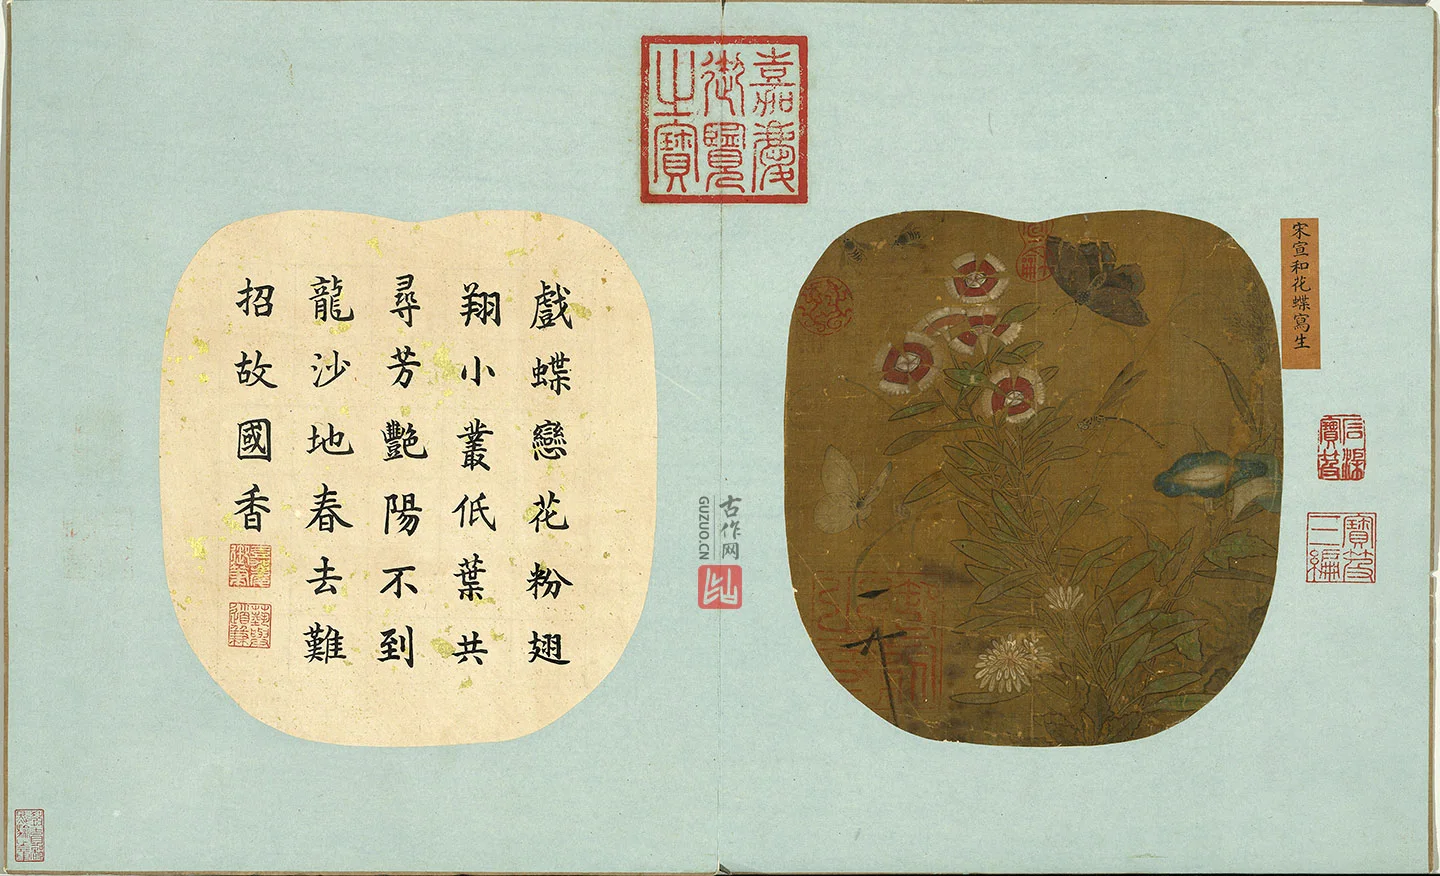 嘉慶
御覽
之寶
宋宣和花蝶寫生
戲蝶戀花粉翅
翔小叢低葉共
尋芳艷陽不到
龍沙地春去難
招故國香
寶笈
三編
古作网
GUZUO.CN